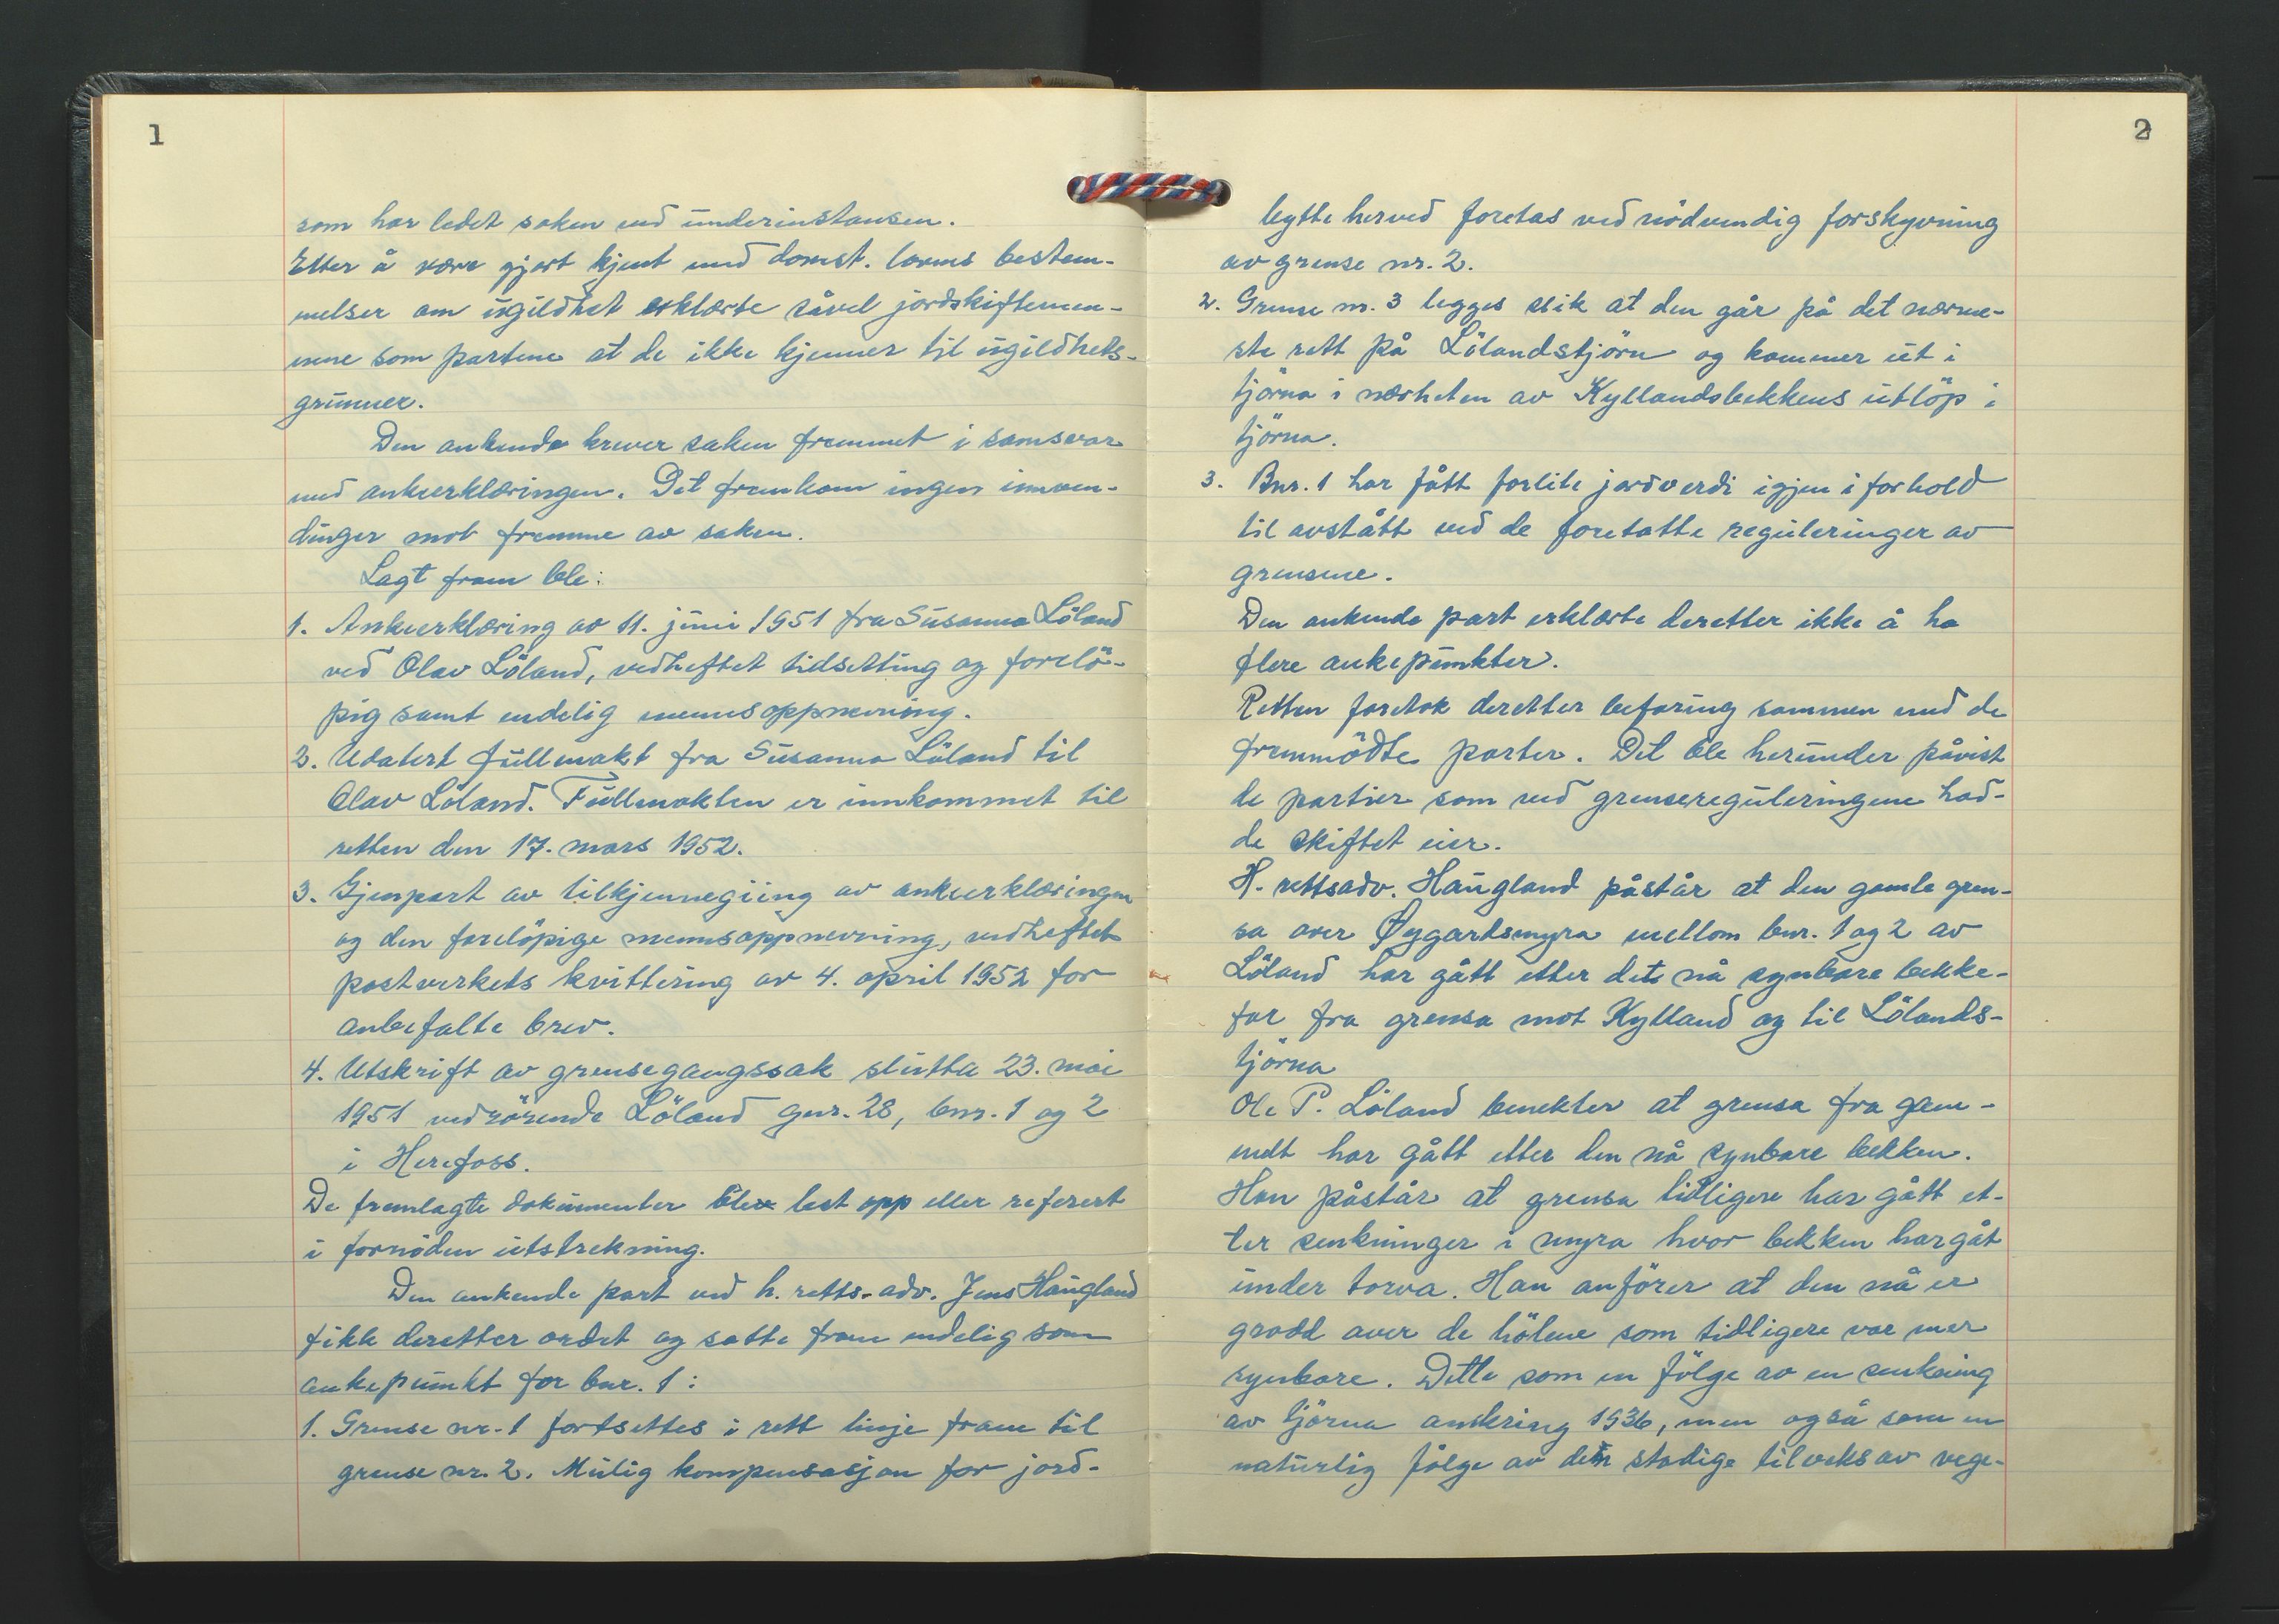 1
som har ledet saken ved underinstansen.
Etter å være gjort kjent med domst. lovens bestem-
melser om ugildhet erklærte såvel jordskiftemen-
nene som partene at de ikke kjenner til ugildhets-
grunner.
Den ankende krever saken fremmet i samsvar
med ankeerklæringen. Det fremkom ingen innven-
dinger mot fremme av saken.
Lagt fram ble:
1. Ankeerklæring av 11. juni 1951 fra Susanna Löland
ved Olav Löland, vedheftet tidsetting og forelö-
pig samt endelig mennsoppnevning.
2. Udatert fullmakt fra Susanna Löland til
Olav Löland. Fullmakten er innkommet til
retten den 17. mars 1952.
3. Gjenpart av tilkjennegiing av ankeerklæringen
og den forelöpige mennsoppnevning, vedheftet
postverkets kvittering av 4. april 1952 for
anbefalte brev.
4. Utskrift av grensegangssak slutta 23. mai
1951 vedrörende Löland gnr. 28, bnr. 1 og 2
i Herefoss.
De fremlagte dokumenter blev lest opp eller referert
i fornöden utstrekning.
Den ankende part ved h. retts-adv. Jens Haugland
fikk deretter ordet og satte fram endelig som
ankepunkt for bnr. 1:
1. Grense nr. 1 fortsettes i rett linje fram til
grense nr. 2. Mulig kompensasjon for jord-
2
bytte herved foretas ved nödvendig forskyvning
av grense nr. 2.
2. Grense nr. 3 legges slik at den går på det nærme-
ste rett på Lölandstjörn og kommer ut i
tjörna i nærheten av Kyllandsbekkens utlöp i
tjörna.
3. Bnr. 1 har fått forlite jordverdi igjen i forhold
til avstått ved de foretatte reguleringer av
grensene.
Den ankende part erklærte deretter ikke å ha
flere ankepunkter.
Retten foretok deretter befaring sammen med de
fremmödte parter. Det ble herunder påvist
de partier som ved grensereguleringene had-
de skiftet eier.
H. rettsadv. Haugland påstår at den gamle gren-
sa over Øygardsmyra mellom bnr. 1 og 2 av
Löland har gått etter det nå synbare bekke-
far fra grensa mot Kylland og til Lölands-
tjörna
Ole P. Löland benekter at grensa fra gam-
melt har gått etter den nå synbare bekken.
Han påstår at grensa tidligere har gått et-
ter senkninger i myra hvor bekken har gåt
under torva. Han anförer at den nå er
grodd over de hölene som tidligere var mer
synbare. Dette som en fölge av en senkning
av tjörna omkring 1936, men også som en
naturlig fölge av den stadige tilveks av vege-